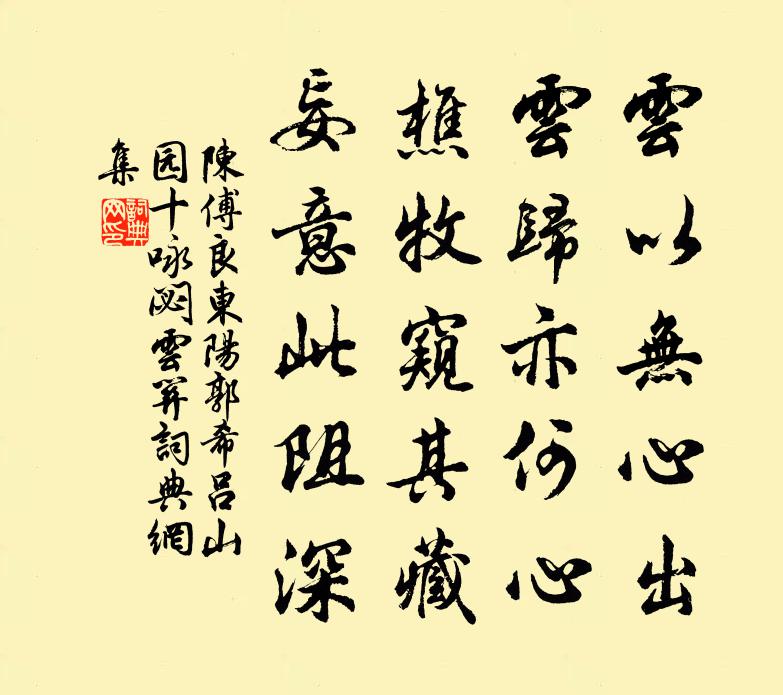 雲以無心出
雲歸亦何心
樵牧窺其藏
妄意此阻深
陳傅良東陽郭希呂山
园十咏閟雲关詞典網
集
詞典
网印